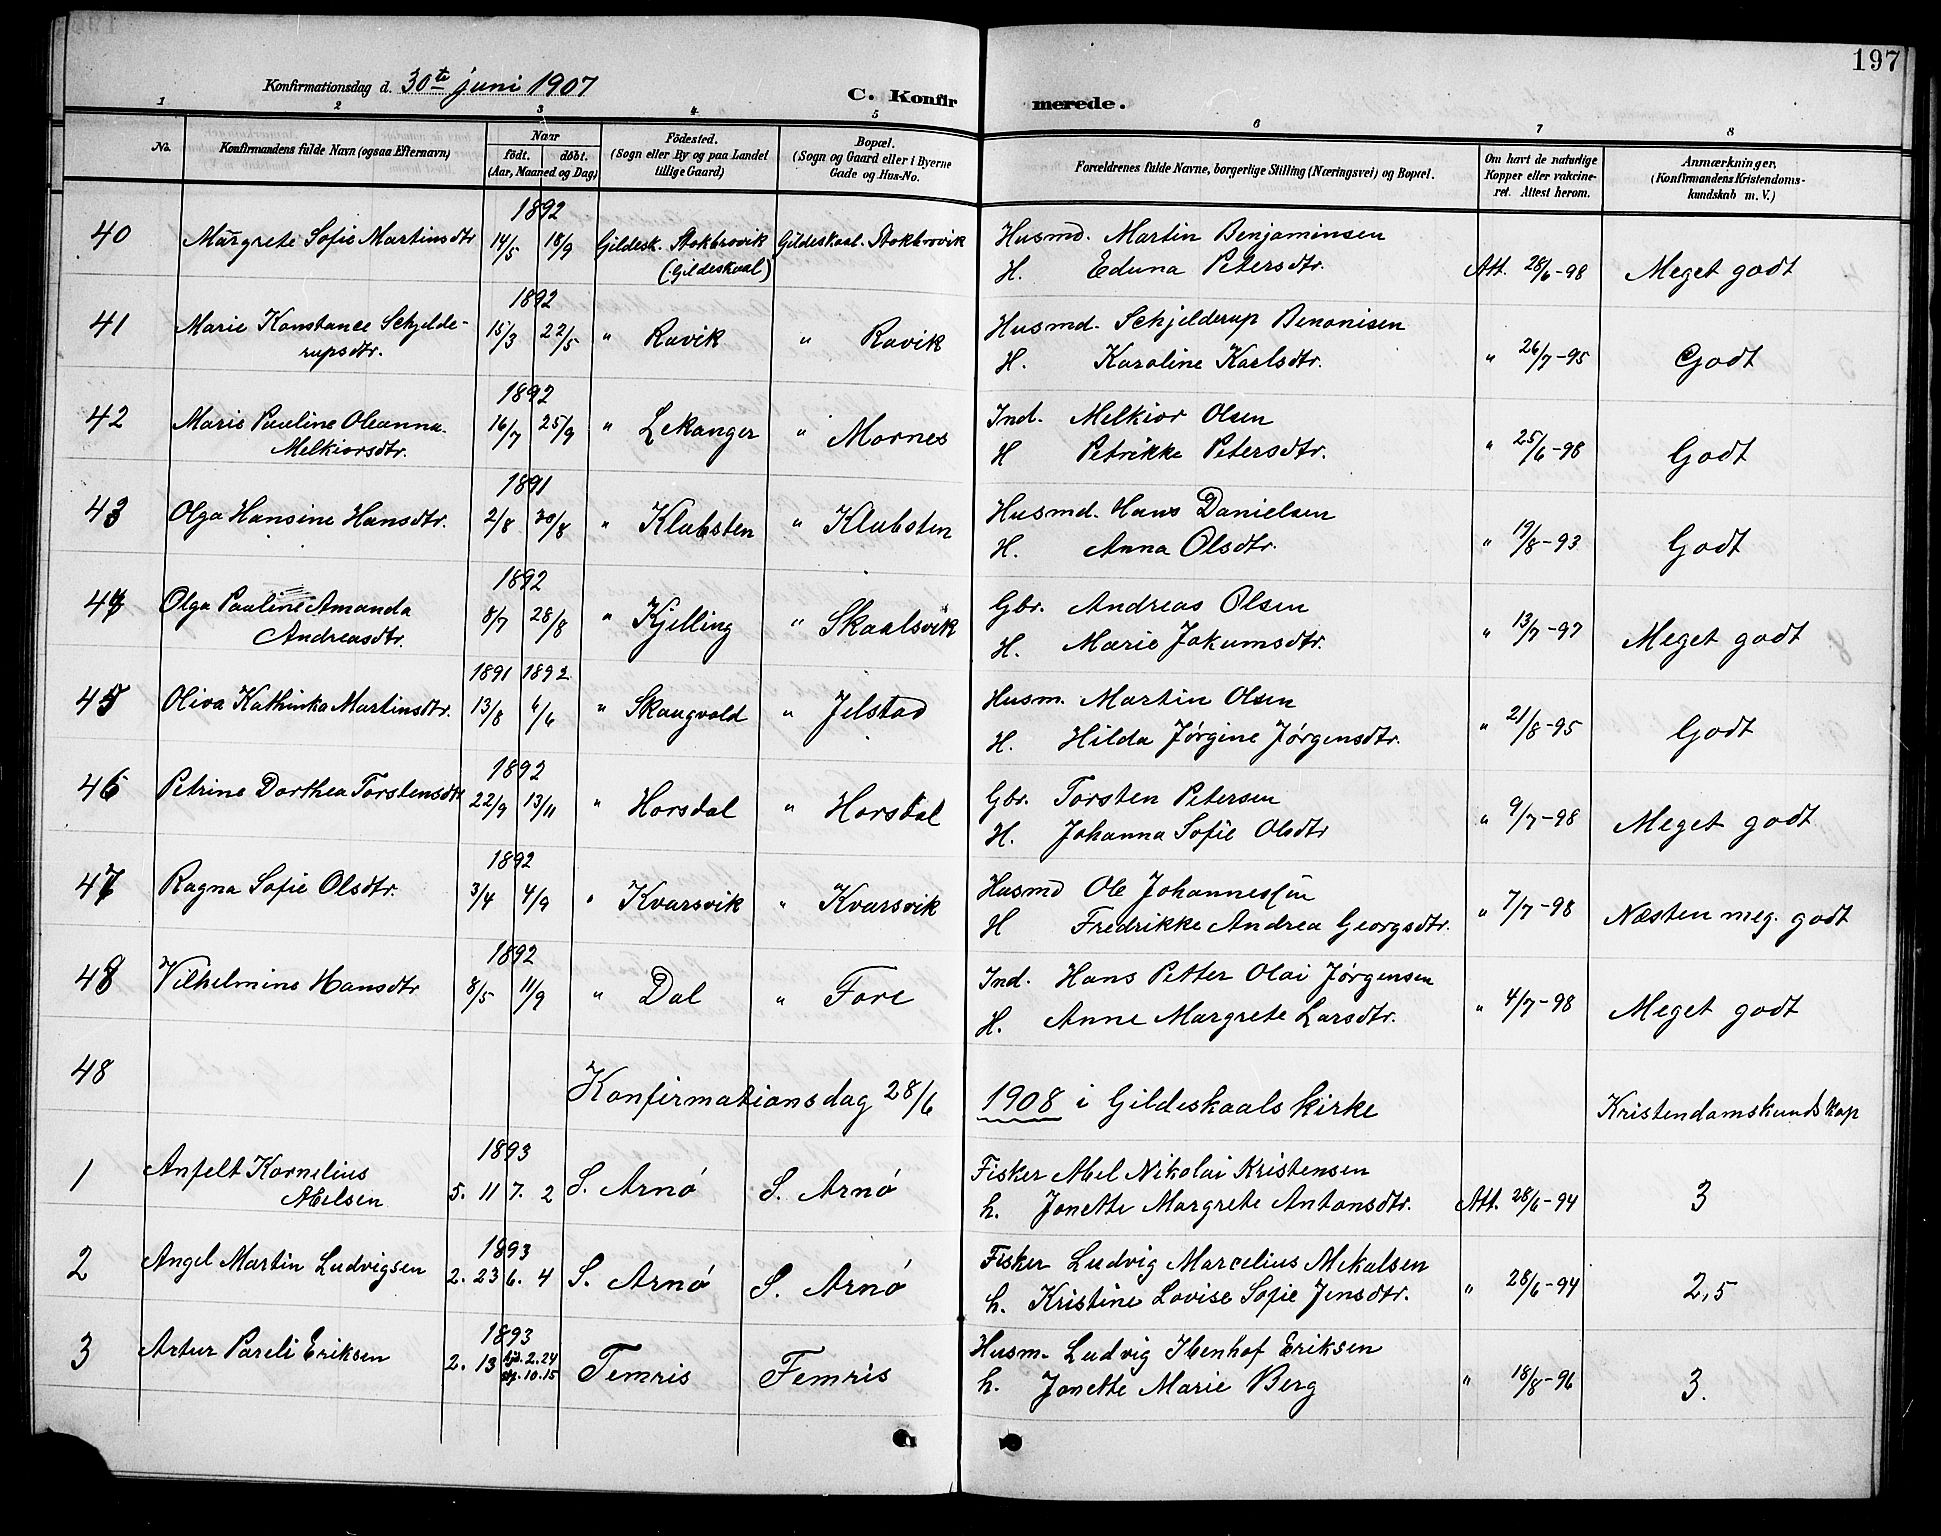 197
Konfirmationsdag d. 30te juni 1907
C. Konfirmerede.
1 2 3 4 5 6 7 8
No. Konfirmandens fulde Navn (ogsaa Efternavn) Naar født. døbt. (Aar, Maaned og Dag) Fødested. (Sogn eller By og paa Landet tillige Gaard) Bopæl. (Sogn og Gaard eller i Byerne Gade og Hus-No. Forældrenes fulde Navne, borgerlige Stilling (Næringsvei) og Bopæl. Om havt de naturlige Kopper eller vakcineret. Attest herom. Anmærkninger, (Konfirmandens Kristendomskundskab m. V.)
1892
40 Margrete Sofie Martinsdtr 14/5 18/9 Gildesk. Stokbrovik Gildeskaal. Stokbrovik Husmd. Martin Benjaminsen
(Gildeskaal) H. Eduna Petersdtr. Att. 28/6-98 Meget godt
1892
41 Marie Konstance Schjelde- 15/3 22/5 " Ravik " Ravik Husmd. Schjelderup Benonisen
rupsdtr. H. Karoline Karlsdtr. " 26/7-95 Godt
1892
42 Marie Pauline Oleanna 16/7 25/9 " Lekanger " Mornes Ind. Melkior Olsen
Melkiorsdtr. H Petrikke Petersdtr. " 25/6-98 Godt
1891
43 Olga Hansine Hansdtr. 2/8 30/8 " Klubsten " Klubsten Husmd. Hans Danielsen
H. Anna Olsdtr. " 19/8-93 Godt
1892
44 Olga Pauline Amanda 8/7 28/8 " Kjelling " Skaalsvik Gbr. Andreas Olsen
Andreasdtr. H. Marie Jakumsdtr. " 13/7-97 Meget godt
1891 1892
45 Oliva Kathinka Martinsdtr. 13/8 6/6 " Skaugvold " Jelstad Husm. Martin Olsen
H. Hilda Jørgine Jørgensdtr. " 21/8-95 Godt
1892
46 Petrine Dorthea Torstensdtr 22/9 13/11 " Horsdal " Horsdal Gbr. Torsten Petersen
H. Johanna Sofie Olsdtr " 9/7-98 Meget godt
1892
47 Ragna Sofie Olsdtr. 3/4 4/9 " Kvarsvik " Kvarsvik Husmd Ole Johannesen
H Fredrikke Andrea Georgsdtr. " 7/7-98 Næsten meg. godt
1892
48 Vilhelmine Hansdtr 8/5 11/9 " Dal " Fore Ind. Hans Petter Olai Jørgensen
H. Anne Margrete Larsdtr. " 4/7-98 Meget godt
48
Konfirmationsdag 28/6 1908 i Gildeskaals kirke Kristendomskundskap
1893
1 Anfelt Kornelius Fisker Abel Nikolai Kristensen
Abelsen 5. 11 7. 2 S. Arnø S. Arnø h. Jonette Margrete Antonsdtr. Att. 28/6-94 3
1893
2 Angel Martin Ludvigsen 2. 23 6. 4 S. Arnø S. Arnø Fisker Ludvig Marcelius Mikalsen
h. Kristine Lovise Sofie Jensdtr. " 28/6-94 2,5
1893
3 Artur Pareli Eriksen 2. 13 2.24 10.15 Femris Femris Husm. Ludvig Ibenhof Eriksen
h. Jonette Marie Berg " 18/8-96 3.